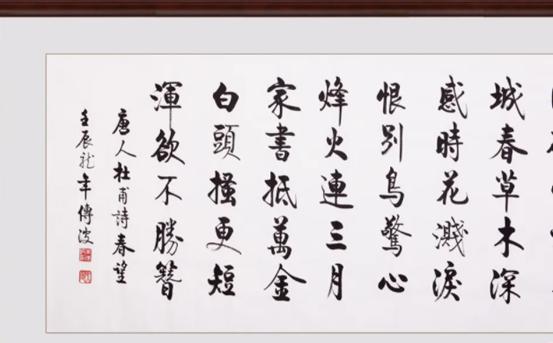 城春草木深
感時花濺淚
恨別鳥驚心
烽火連三月
家書抵萬金
白頭搔更短
渾欲不勝簪
唐人杜甫詩春望
壬辰龍年傳波